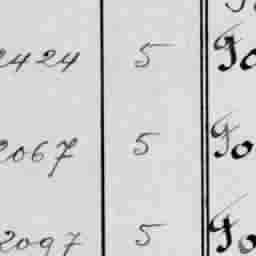 2424 5 Jo
2067 5 Jo
2097 5 Jo